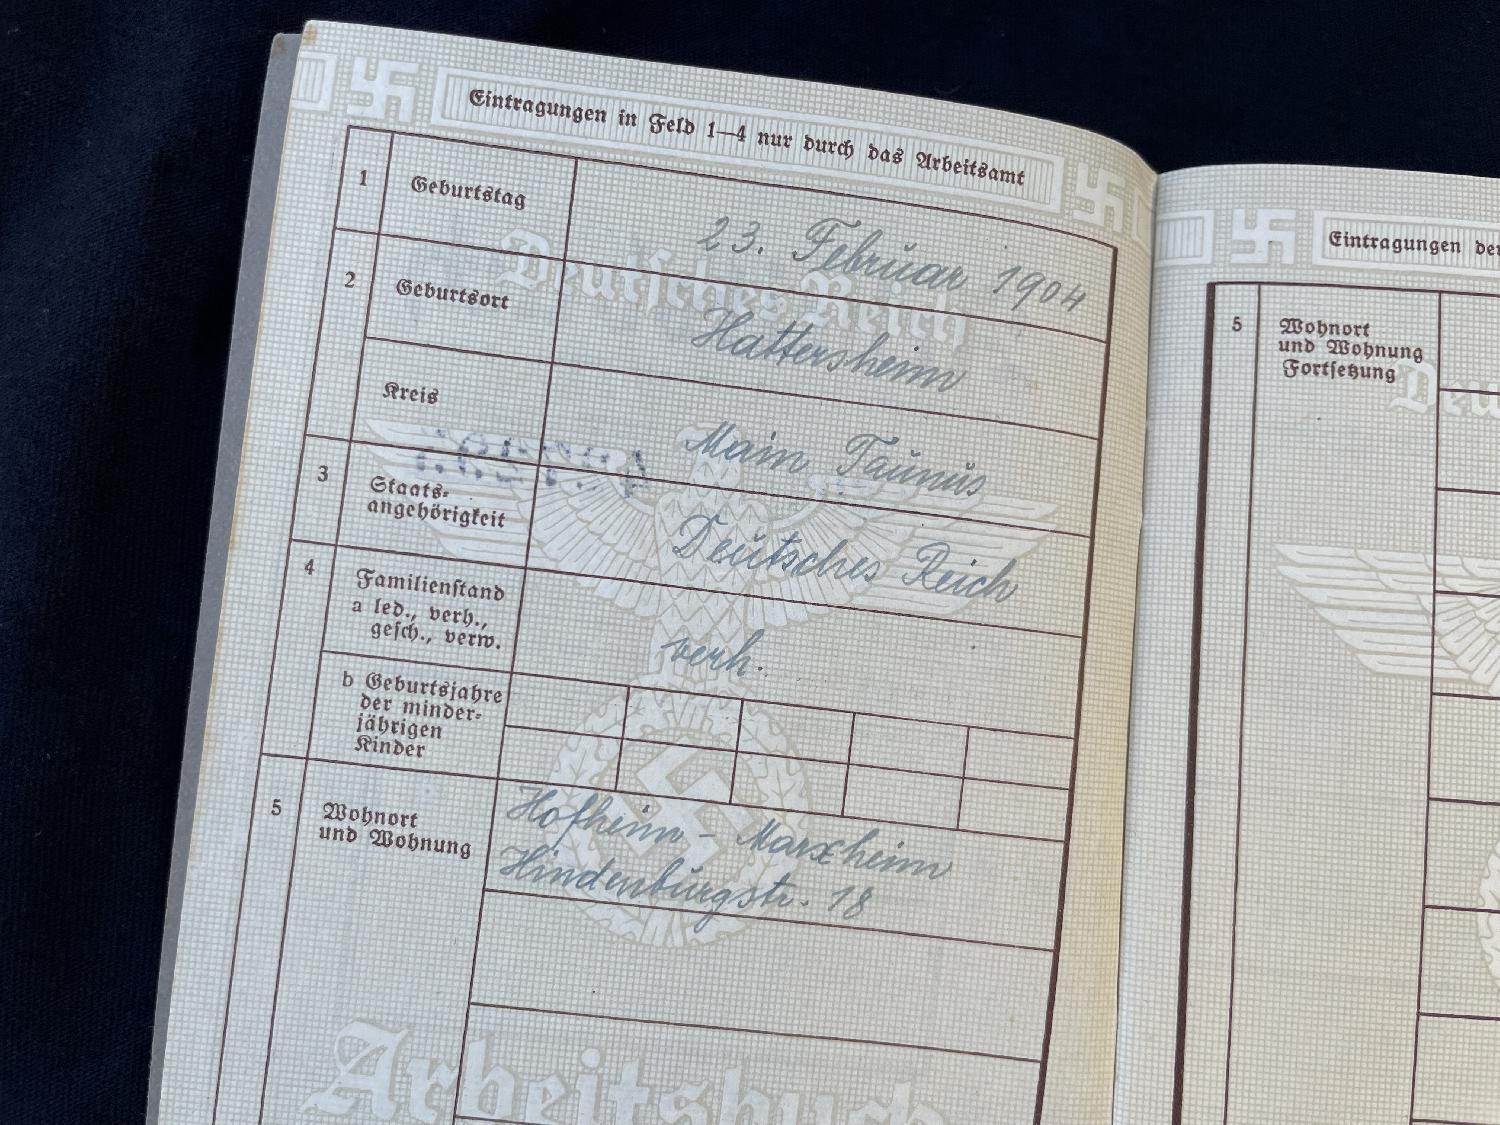 Eintragungen in Feld 1—4 nur durch das Arbeitsamt
1 Geburtstag 23. Februar 1904
2 Geburtsort Hattersheim
Kreis Main Taunus
3 Staats-
angehörigkeit Deutsches Reich
4 Familienstand
a led., verh.,
gesch., verw. verh.
b Geburtsjahre
der minder-
jährigen
Kinder
5 Wohnort
und Wohnung
Hofheim - Marxheim
Hindenburgstr. 18
Deutsches Reich
Arbeitsbuch
Eintragungen
5 Wohnort
und Wohnung
Fortsetzung